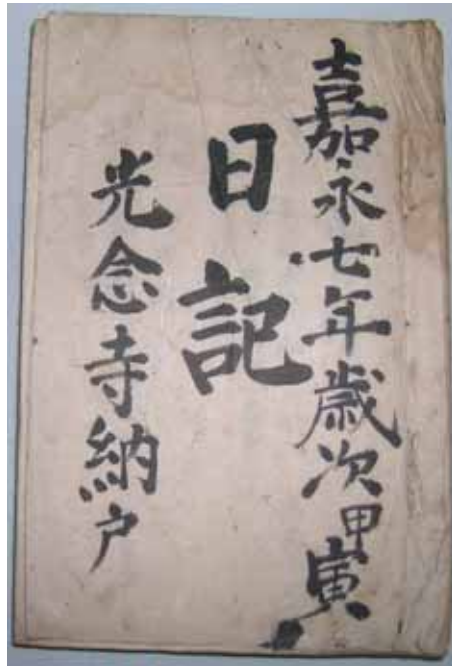 嘉永七年歳次甲寅
日記
光念寺納戸